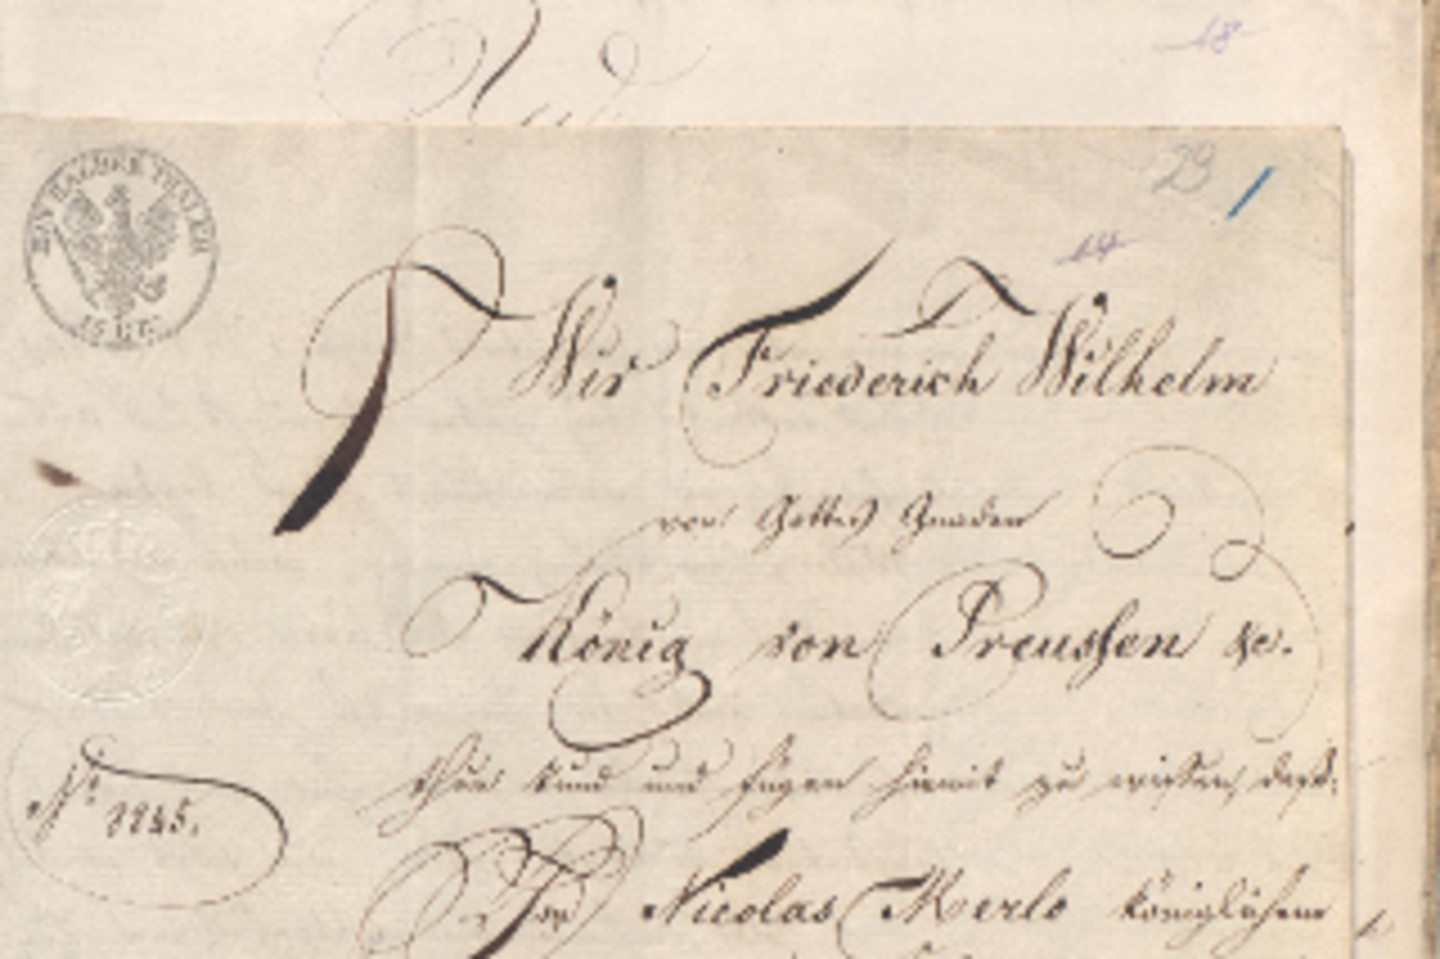 18
29
14
EIN HALBER THALER
15 Gr.
Wir Friederich Wilhelm
von Gottes Gnaden
König von Preussen &c.
thun kund und fügen hiemit zu wissen, daß:
No. 8845.
Vor Nicolas Merlo königlichem